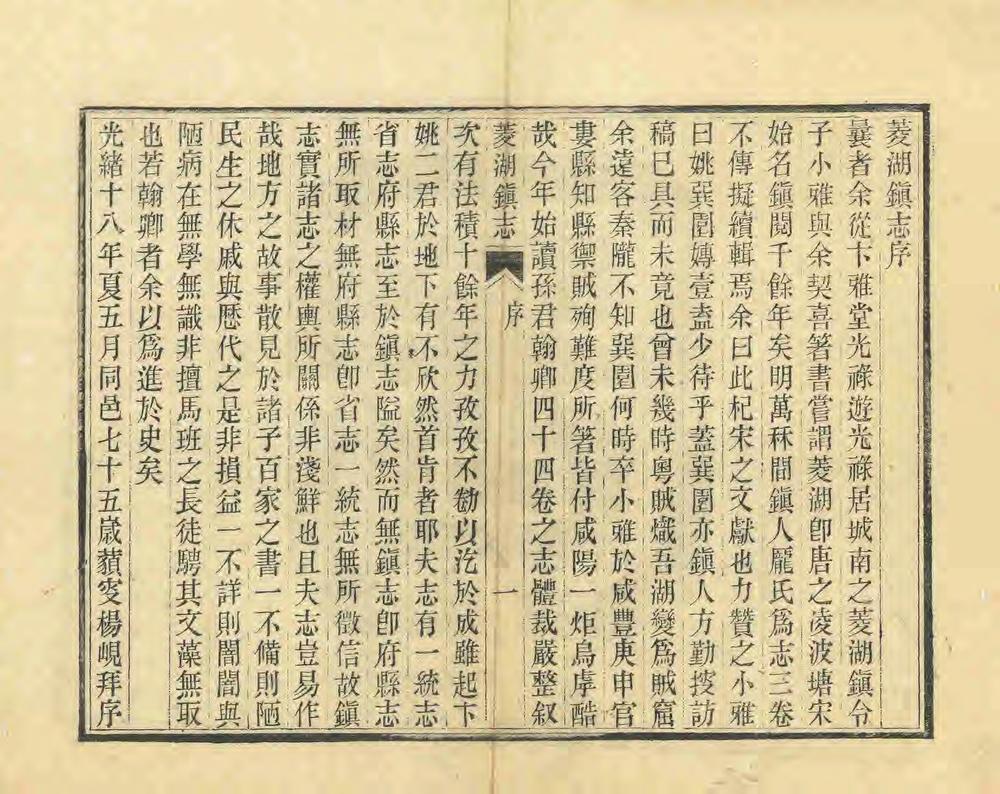 菱湖鎮志序
曩者余從卞雅堂光祿遊光祿居城南之菱湖鎮令
子小雅與余契喜箸書嘗謂菱湖卽唐之淩波塘宋
始名鎮閱千餘年矣明萬秝間鎮人龐氏爲志三卷
不傳擬續輯焉余曰此杞宋之文獻也力贊之小雅
曰姚巽園嫥壹盍少待乎蓋巽園亦鎮人方勤㨞訪
稿已具而未竟也曾未幾時粵賊熾吾湖變爲賊窟
余遠客秦隴不知巽園何時卒小雅於咸豐庚申官
婁縣知縣禦賊殉難度所箸皆付咸陽一炬烏虖酷
哉今年始讀孫君翰卿四十四卷之志體裁嚴整叙
菱湖鎮志 序 一
次有法積十餘年之力孜孜不勌以汔於成雖起卞
姚二君於地下有不欣然首肯者耶夫志有一統志
省志府縣志至於鎮志隘矣然而無鎮志卽府縣志
無所取材無府縣志卽省志一統志無所徵信故鎮
志實諸志之權輿所關係非淺鮮也且夫志豈易作
哉地方之故事散見於諸子百家之書一不備則陋
民生之休戚與歷代之是非損益一不詳則闇闇與
陋病在無學無識非擅馬班之長徒騁其文藻無取
也若翰卿者余以爲進於史矣
光緒十八年夏五月同邑七十五歲藾叜楊峴拜序